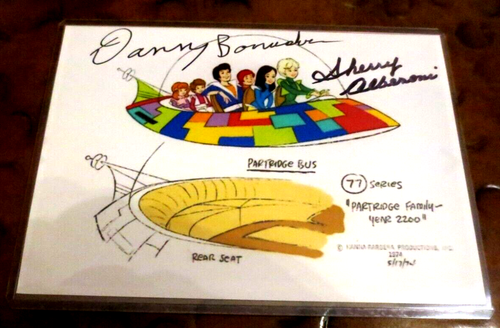 Danny Bonaduce
Sherry
Alberoni
PARTRIDGE BUS
77 SERIES
"PARTRIDGE FAMILY-
YEAR 2200"
REAR SEAT
© HANNA-BARBERA PRODUCTIONS, INC.
1974